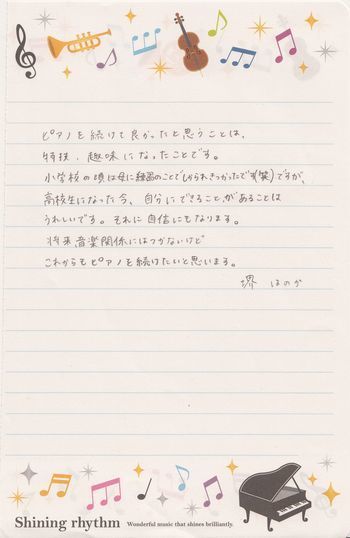 ピアノを続けて良かったと思うことは、
特技、趣味になったことです。
小学校の頃は母に練習のことでしかられきつかったです(笑)ですが、
高校生になった今、自分にできることがあることは
うれしいです。それに自信にもなります。
将来音楽関係にはつかないけど
これからもピアノを続けたいと思います。
堺 ほのか
Shining rhythm Wonderful music that shines brilliantly.